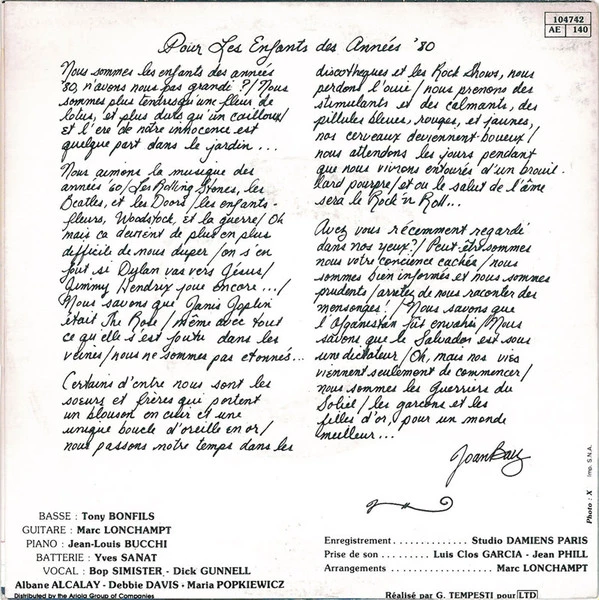 104742
AE 140
Pour Les Enfants des Années '80
Nous sommes les enfants des années
'80, n'avons nous pas grandi ?/ Nous
sommes plus tendres qu'un fleur de
lotus, et plus durs qu'un cailloux/
et l'ere de notre innocence est
quelque part dans le jardin...
Nous aimons la musique des
années '60/ Les Rolling Stones, les
Beatles, et les Doors/ les enfants-
fleurs, Woodstock, et la guerre/ Oh
mais ca devient de plus en plus
difficile de nous duper/ on s'en
fout si Dylan vas vers Jésus/
Jimmy Hendrix joue encore.../
Nous savons que Janis Joplin
était The Rose/ même avec tout
ce qu'elle s'est foutu dans les
veines/ nous ne sommes pas etonnés...
Certains d'entre nous sont les
soeurs et frères qui portent
un blouson en cuir et une
unique boucle d'oreille en or/
nous passons notre temps dans les
discotheques et les Rock Shows, nous
perdons l'ouïe/ nous prenons des
stimulants et des calmants, des
pillules bleues, rouges, et jaunes,
nos cerveaux deviennent boueux/
nous attendons les jours pendant
que nous vivrons entourés d'un brouil-
lard pourpre/ et ou le salut de l'âme
sera le Rock 'n Roll...
Avez vous récemment regardé
dans nos yeux?/ Peut-être sommes
nous votre concience cachée/ nous
sommes bien informés et nous sommes
prudents/ arretez de nous raconter des
mensonges!/ Nous savons que
l'Afganistan fut envahi/ Nous
savons que le Salvador est sous
un dictateur/ Oh, mais nos vies
viennent seulement de commencer/
nous sommes les guerriers du
Soliel/ les garçons et les
filles d'or, pour un monde
meilleur...
Joan Baez
Photo : X Imp. S.N.A.
BASSE : Tony BONFILS
GUITARE : Marc LONCHAMPT
PIANO : Jean-Louis BUCCHI
BATTERIE : Yves SANAT
VOCAL : Bop SIMISTER - Dick GUNNELL
Albane ALCALAY - Debbie DAVIS - Maria POPKIEWICZ
Distributed by the Ariola Group of Companies
Enregistrement . . . . . . . . . . . . . Studio DAMIENS PARIS
Prise de son . . . . . . . . Luis Clos GARCIA - Jean PHILL
Arrangements . . . . . . . . . . . . . . . . . . Marc LONCHAMPT
Réalisé par G. TEMPESTI pour LTD